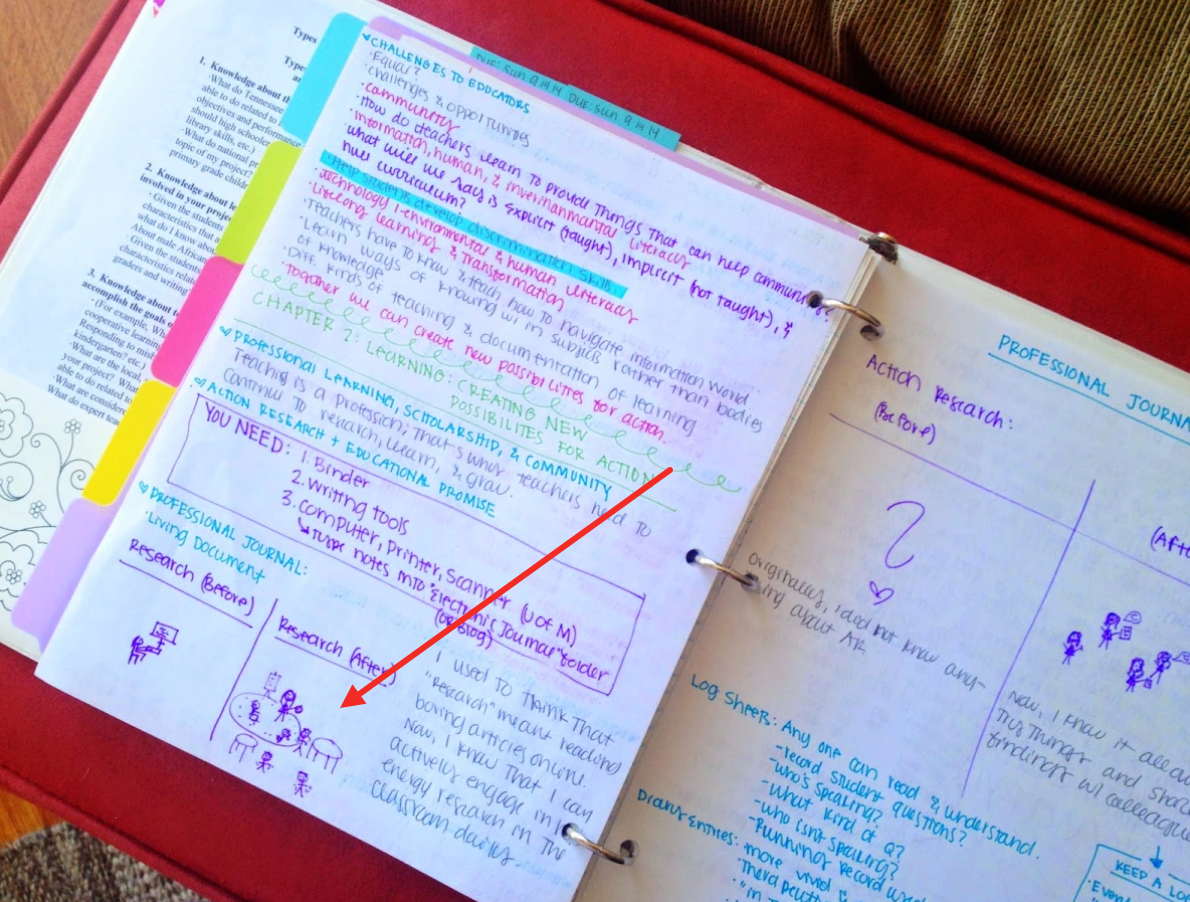 Types
Type
a
1. Knowledge about th
·What do Tennessee
able to do related to
objectives and performance
should high schooler
library skills, etc.)
·What do national p
topic of my project?
primary grade childr
2. Knowledge about le
involved in your proje
·Given the students
characteristics that a
what do I know about
About male African
·Given the students
characteristics rela
graders and writing
3. Knowledge about te
accomplish the goals o
·(For example, Wh
cooperative learning
Responding to mis
kindergarten? etc.)
·What are the local,
your project? What
able to do related to
·What are considere
What do expert tea
DUE: Sun 9.14.14 DUE: Sun 9.14.14
CHALLENGES TO EDUCATORS
·Equal?
·challenges & opportunities
·community
·How do teachers learn to provide things that can help community?
·information, human, & envirinanmantal literacy
·what will we say is explicit (taught), implicit (not taught), &
null curriculum?
·Help students develop discrimination skills
·Technology / environmental & human literacy
·Lifelong learning & transformation
·Teachers have to know & teach how to navigate information world.
·Learn ways of knowing w/ in subjects rather than bodies
of knowledge
·Diff. kinds of teaching & documentation of learning
Together we can create new possibilities for action.
CHAPTER 2: LEARNING: CREATING NEW
POSSIBILITES FOR ACTION
PROFESSIONAL LEARNING, SCHOLARSHIP, & COMMUNITY
Teaching is a profession; that's why teachers need to
continue to research, learn, & grow.
ACTION RESEARCH + EDUCATIONAL PROMISE
YOU NEED: 1. Binder
2. writing tools
3. computer, printer, scanner (U of M)
↳ type notes into "Electronic Journal" folder
(or Blog)
PROFESSIONAL JOURNAL:
·Living Document
Research (Before)
Research (After)
I used to think that
"research" meant reading
boring articles online.
Now, I know that I can
actively engage in
energy research in the
classroom daily
PROFESSIONAL JOURNA
Action Research:
(Before)
(Afte
?
originally, I did not know any-
thing about AR
Now, I know it
try things and shar
findings w/ colleague
Log Sheets: Any one can read & understand.
-record student questions?
-who's speaking?
-What kind of Q?
-who isn't speaking?
-Running record used
Diary Entries: more vivid &
KEEP A LO